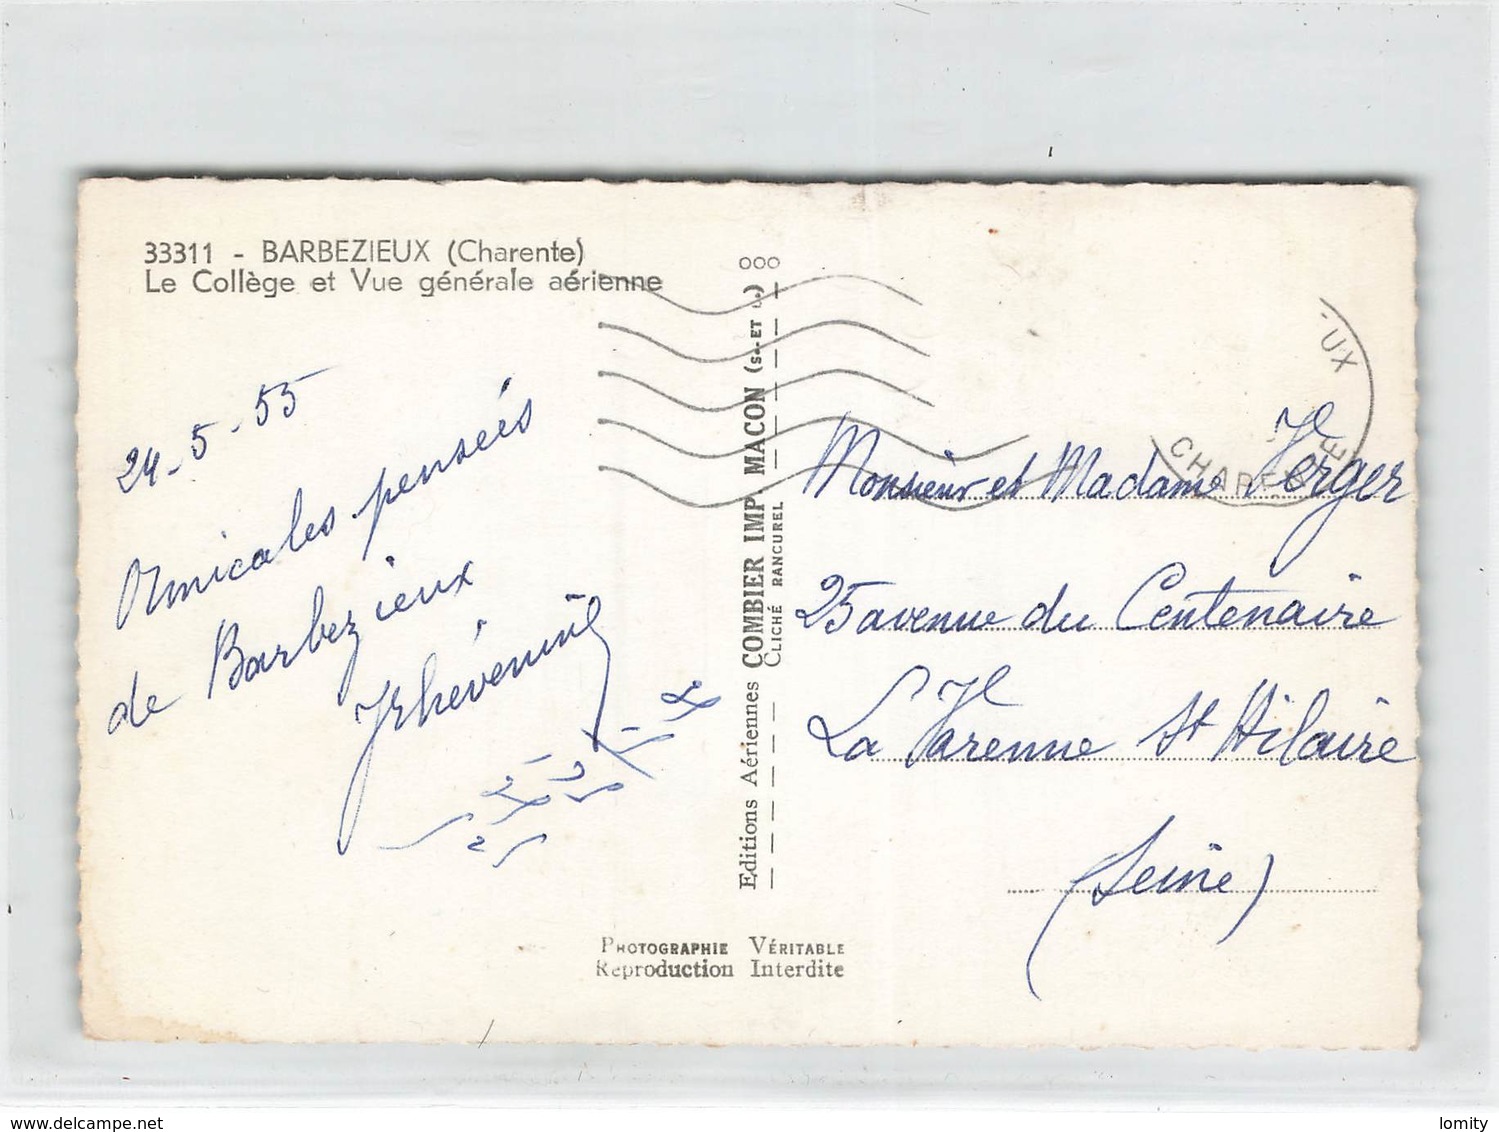 33311 - BARBEZIEUX (Charente)
Le Collège et Vue générale aérienne
24-5-55
Amicales pensées
de Barbezieux
OOO
Editions Aériennes COMBIER IMP. MACON (S.-ET L.)
CLICHÉ RANCUREL
UX
CHARENTE
Monsieur et Madame Yerger
25 avenue du Centenaire
La Varenne St Hilaire
(Seine)
PHOTOGRAPHIE VÉRITABLE
Reproduction Interdite
www.delcampe.net
lomity